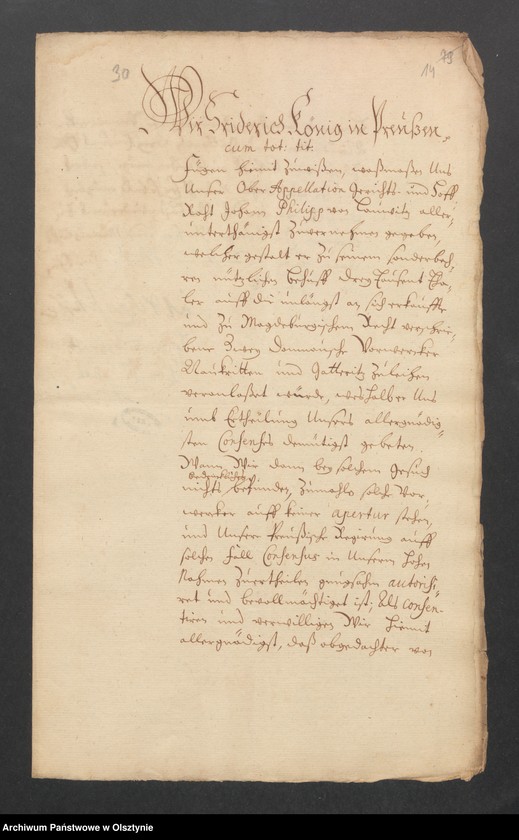 30
79
14
Wir Friderich König in Preußen,
cum tot: tit:
Fügen hiemit zuwißen, waßmaßen Uns
Unser Ober Appellation Gerichts- und Hoff
Raht Johann Philipp von aller-
unterthänigst zuvernehmen gegeben,
welcher gestalt er zu seinem sonderbah-
ren nützlichen behuff drey Tausent Tha-
ler auff die unlängst an sich erkauffte
und zu Magdeburgischem Recht verschrie-
bene Zwey Vorwercker
und zuleihen
veranlaßet würde, weshalber Uns
umb Ertheilung Unsers allergnädig-
sten Consenses demütigst gebeten.
Wann Wir dann bey solchem gesuch
bedenckliches
nichts befunden, zumahlo solche Vor-
wercker auff keiner apertur stehen,
und Unsere Preußische Regirung auff
solchen fall Consensus in Unserm hohen
Nahmen zuertheilen autorisi-
ret und bevollmächtiget ist; Als consen-
tiren und verwilligen Wir hiemit
allergnädigst, daß obgedachter von
Archiwum Państwowe w Olsztynie